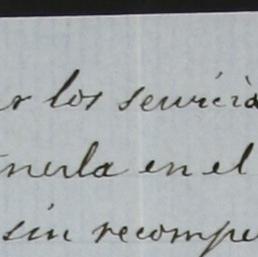 r los servicio
nerla en el
sin recompe